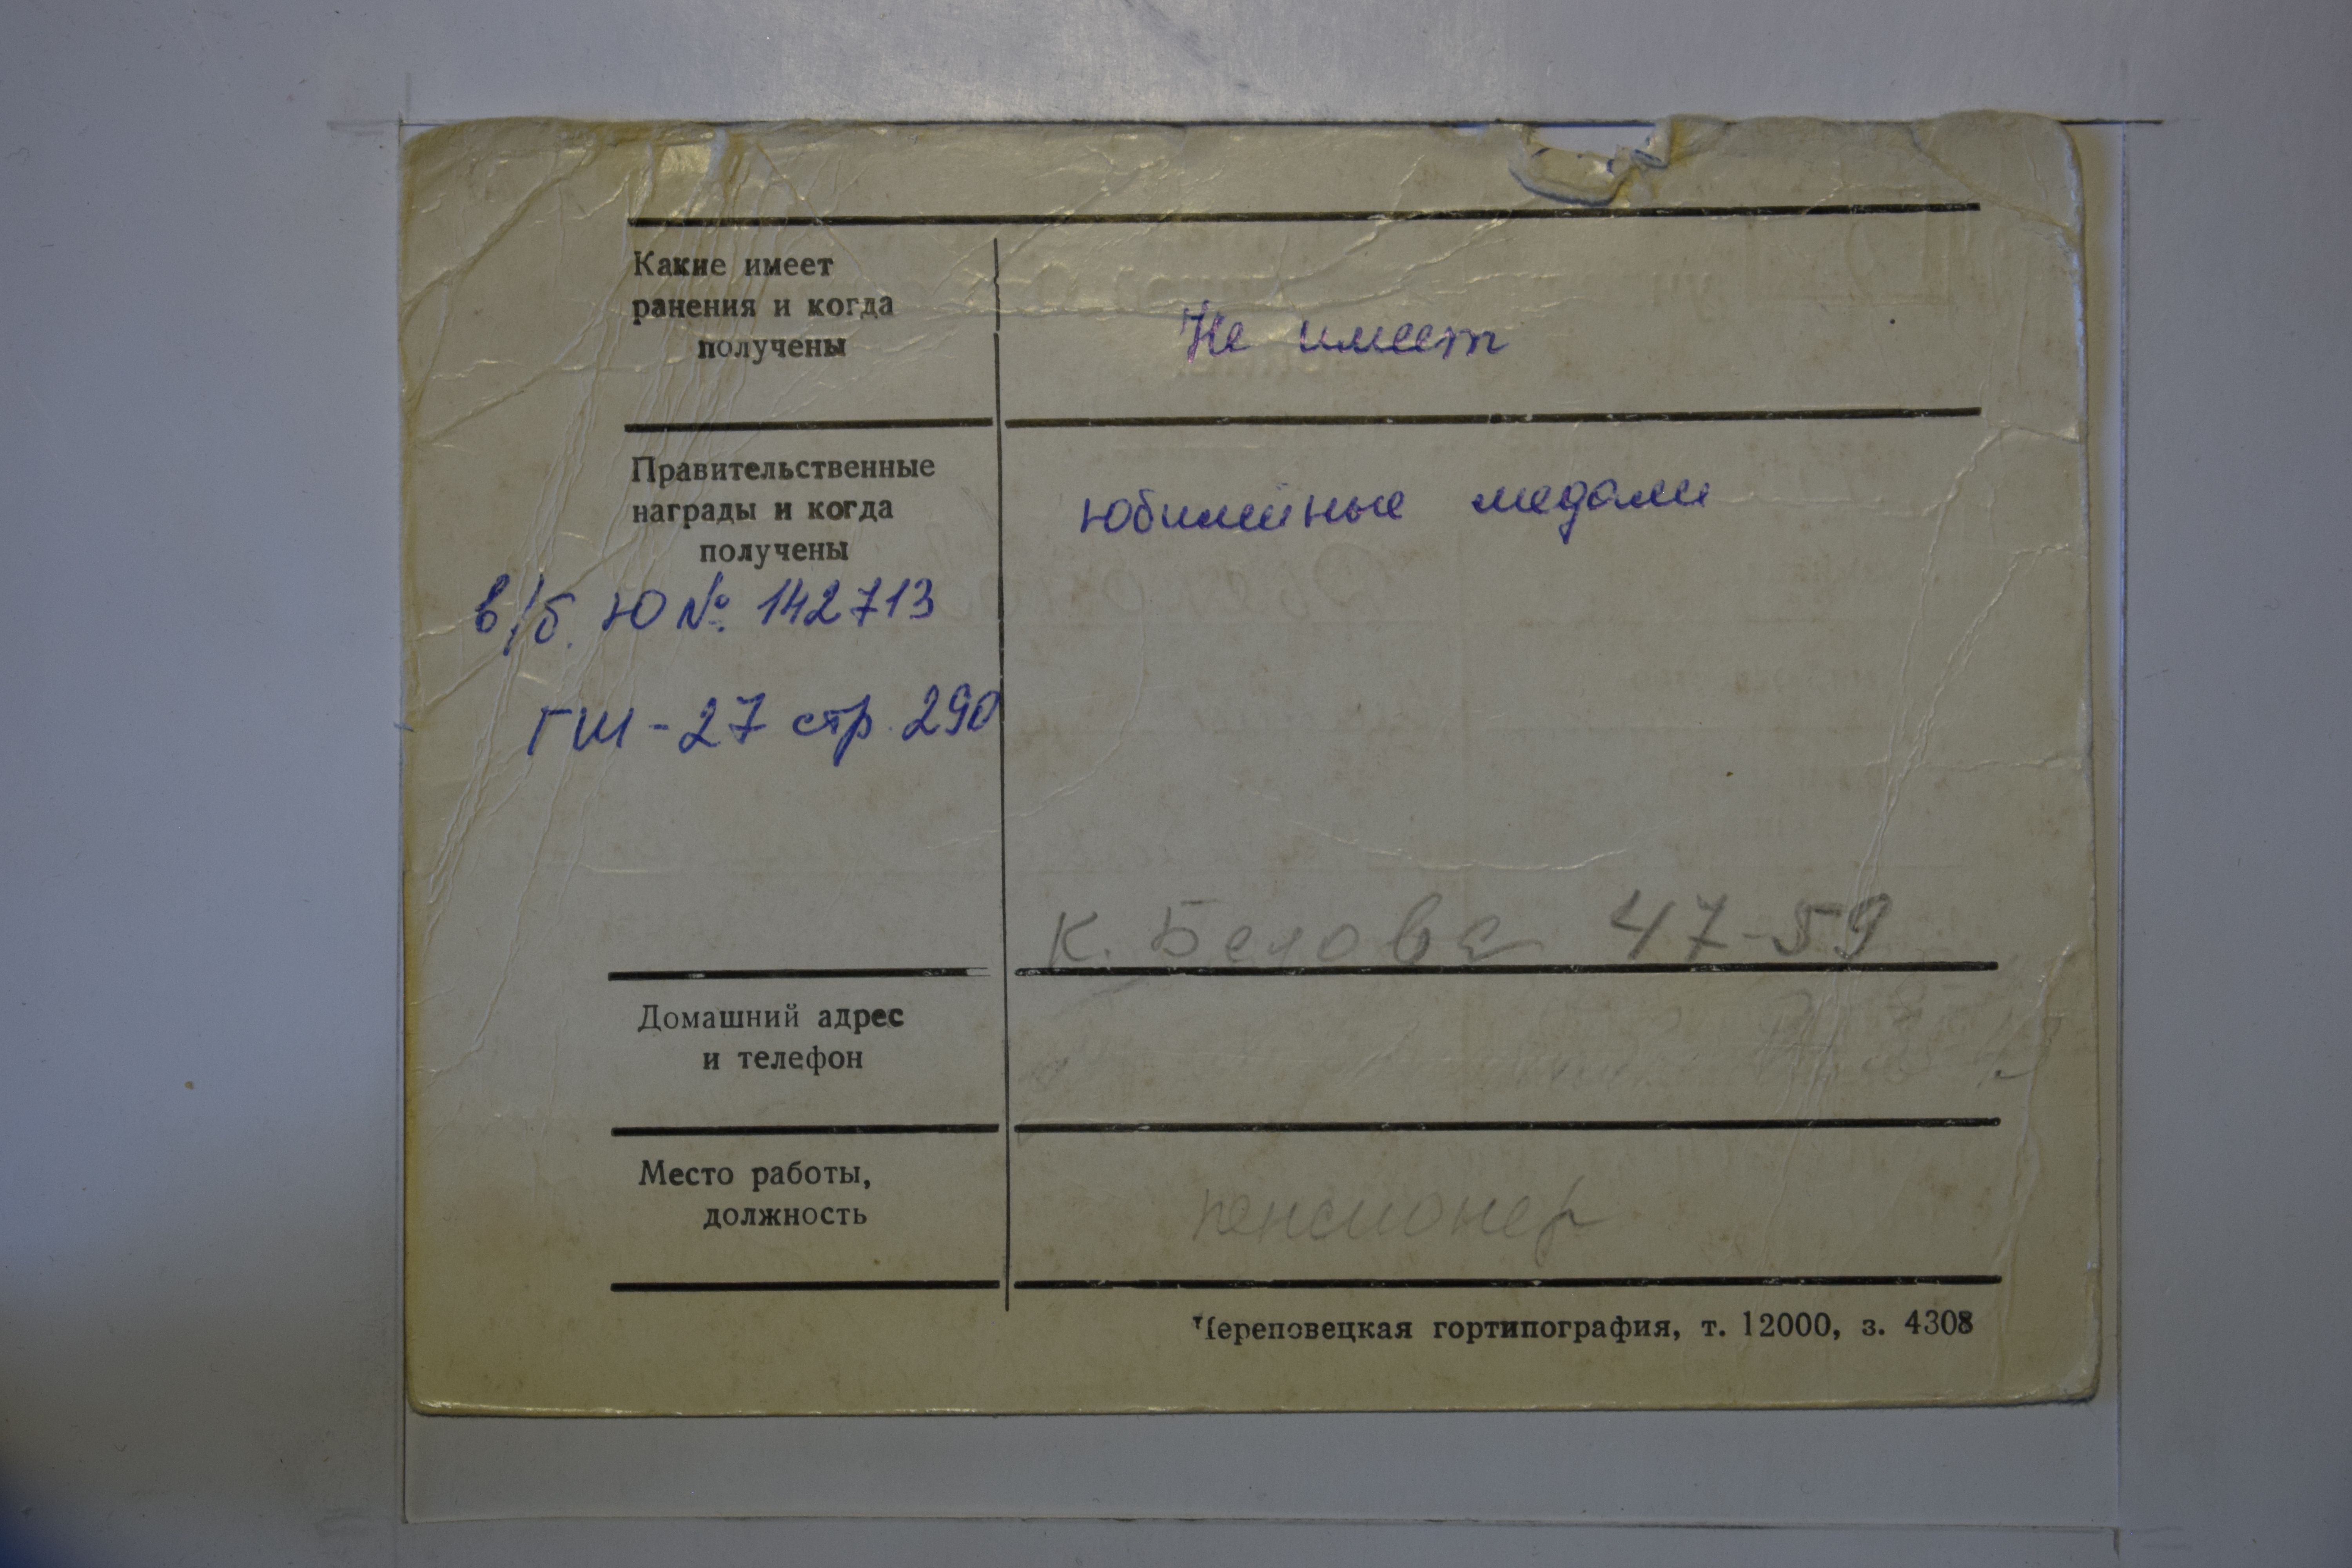 Какие имеет
ранения и когда
получены
Не имеет
Правительственные
награды и когда
получены
юбилейные медали
в/б. Ю №. 142713
ГШ-27 стр. 290
К. Белова 47-59
Домашний адрес
и телефон
Место работы,
должность
пенсионер
Череповецкая гортипография, т. 12000, з. 4308